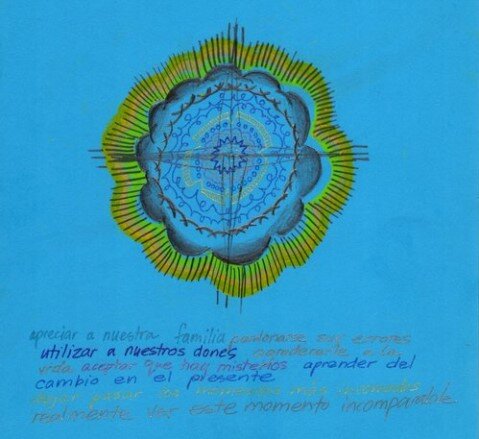 apreciar a nuestra familia perdonarse sus errores
utilizar a nuestros dones agradecerle a la
vida aceptar que hay misterios aprender del
cambio en el presente
dejar pasar los momentos más
realmente ver este momento incomparable.